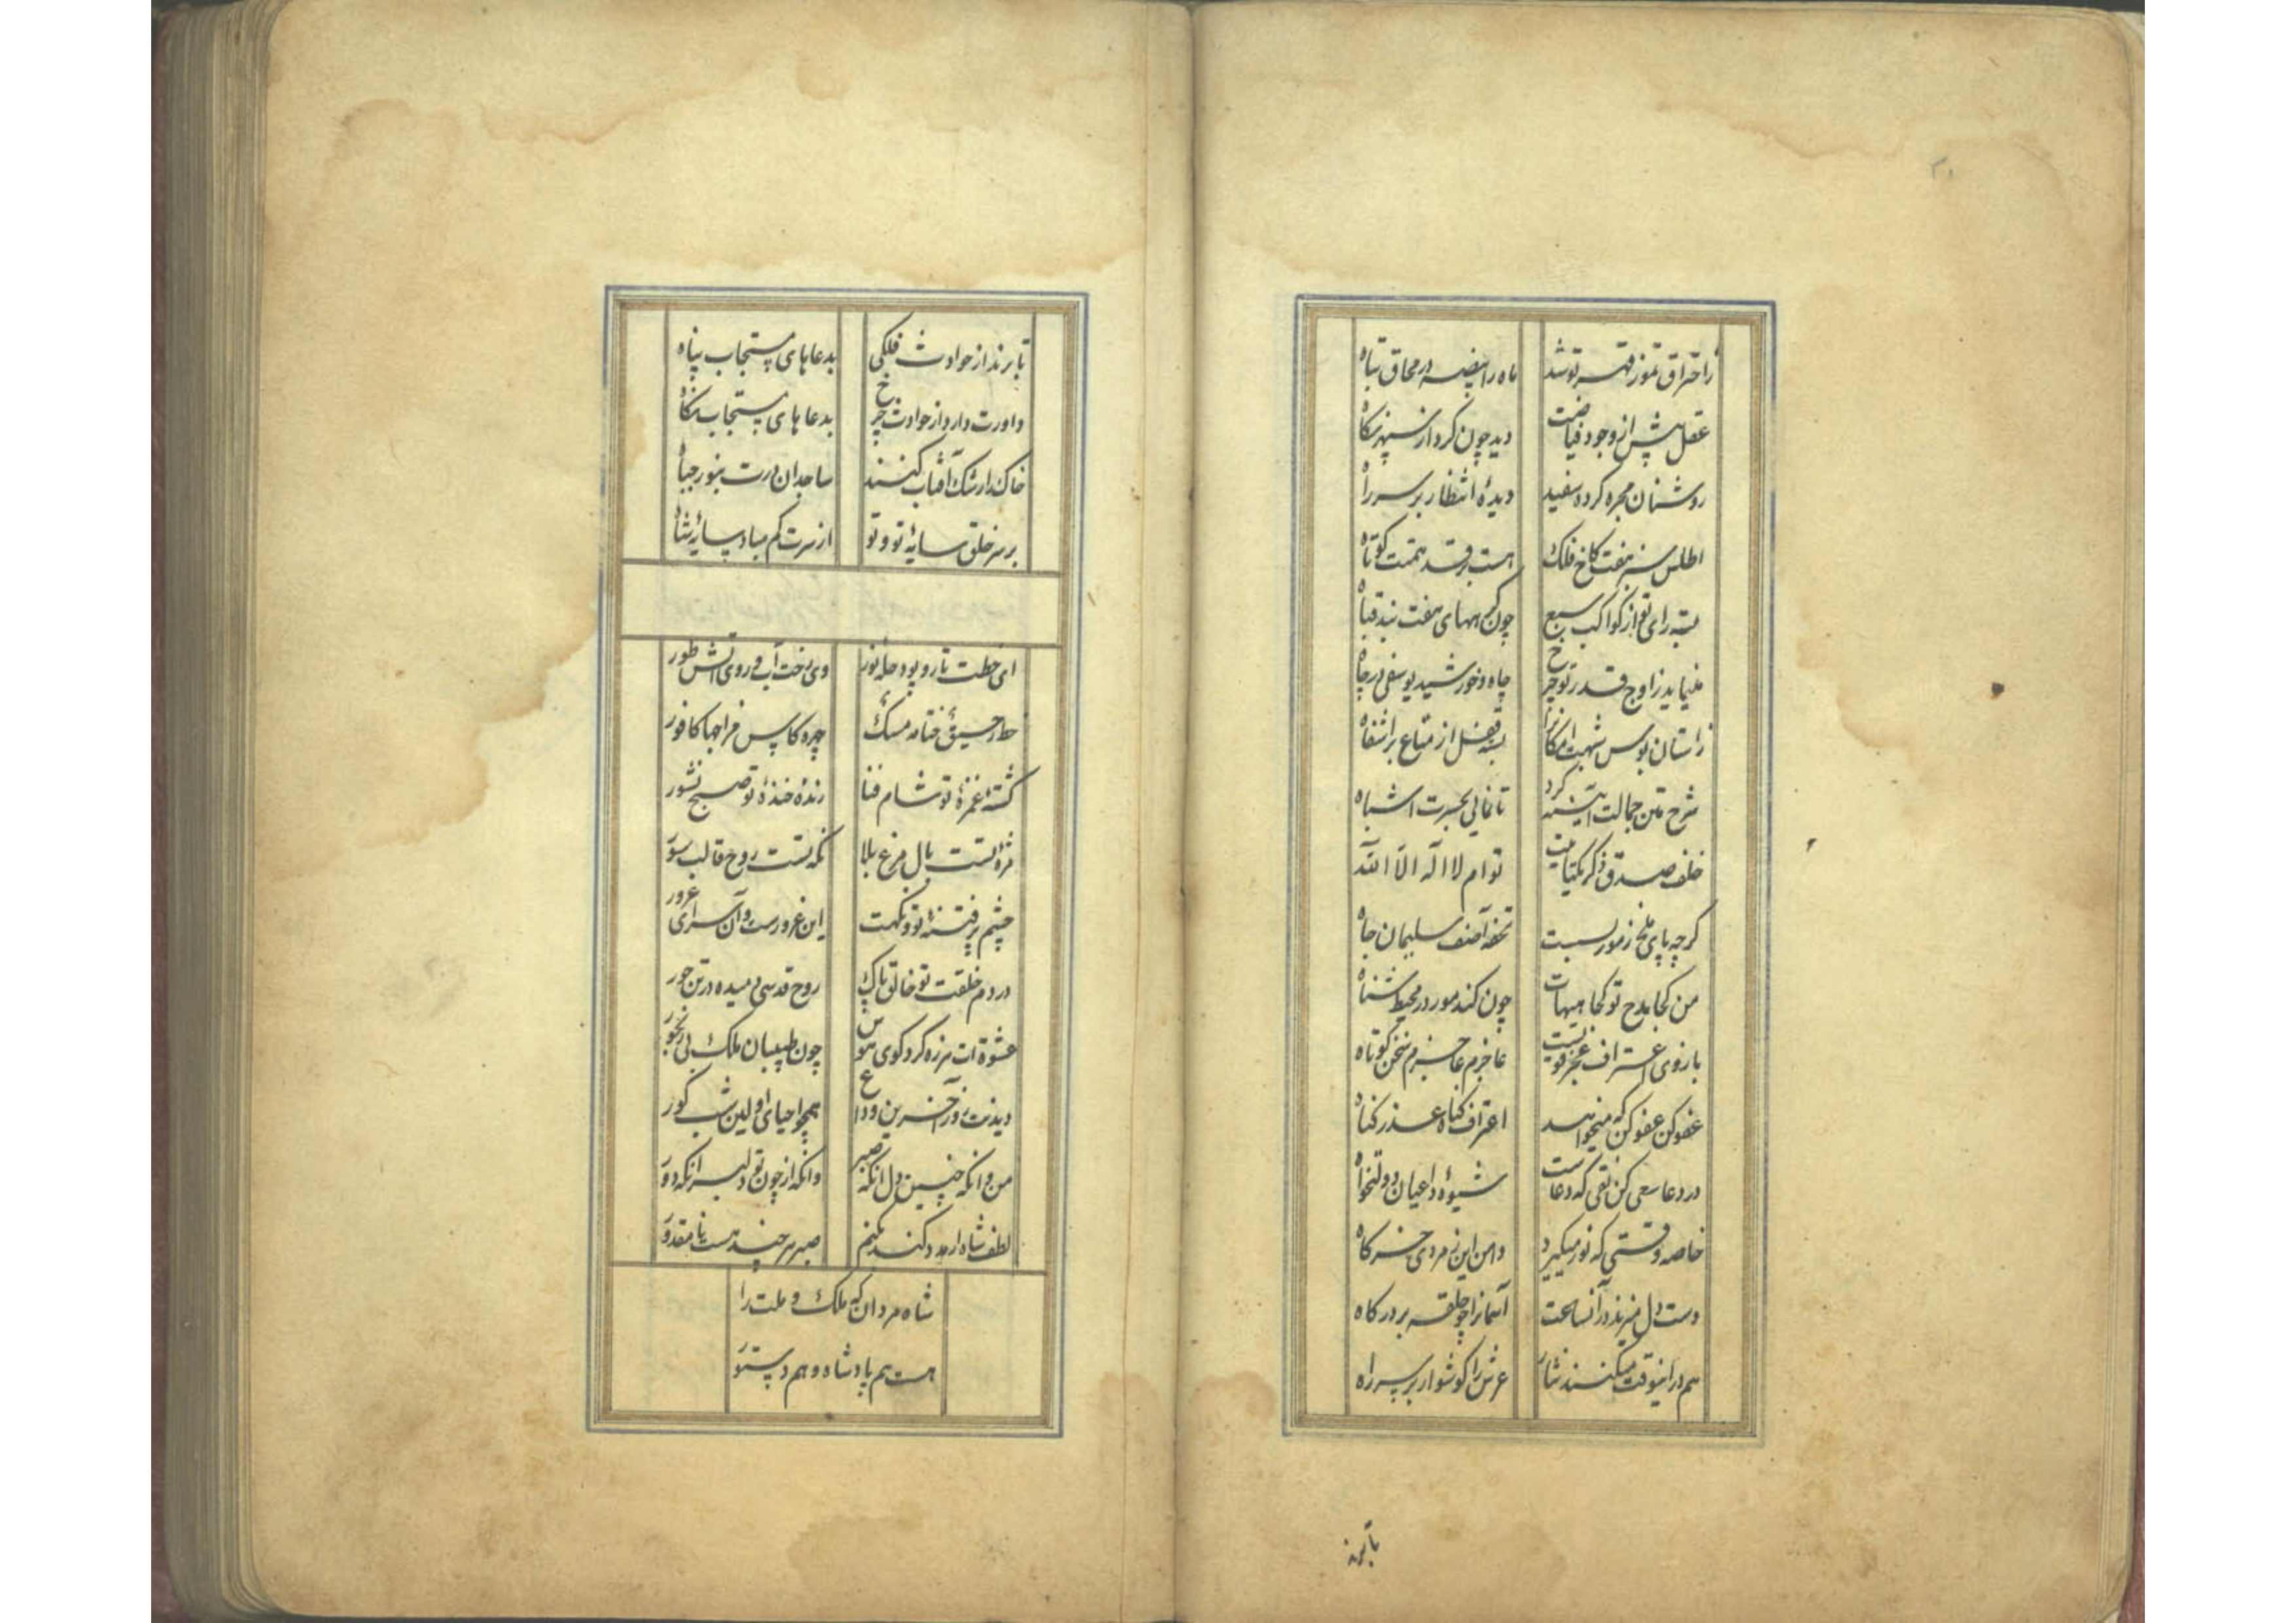 زاحتراق تموز قهر تو شد
ماه را بیضه در محاق تباه
عقل پیش از وجود فیاضت
دید چون کرد از سپهر نکاه
روشنان مجره کرده سفید
دیدهٔ انتظار بر سر راه
اطلس سبز هفت کاخ فلک
هست بر قد همتت کوتاه
بسته رای تو از کواکب سبع
چون کرههای هفت بند قباه
مینماید ز اوج قدر تو چرخ
چاه و خورشید یوسفی در چاه
زاستان بوس شبهت امکانرا
بسته فضل از متاع براشفاه
شرح متن جمالت آیینه کرد
تا نمایی بحیرت اشباه
خلف صدق ذکر یکتاییت
توام لا اله الا الله
کرچه پای ملخ ز مور بسست
تحفه آصف سلیمان جاه
من کجا مدح تو کجا هیهات
چون کند مور در محیط شناه
بازوی اعتراف عجز قویست
عاجزم عاجزم سخن کوتاه
عفو کن عفو کن که میخواهد
اعتراف کناه عذر کناه
در دعا سعی کن تقی که دعاست
شیوهٔ داعیان دولتخواه
خاصه وقتی که نور میکیرد
دامن این زمردی خرکاه
دست دل میزند در آنساعت
آسمانرا چو حلقه بر درکاه
هم در اینوقت میکنند نثار
عرش را کوشوار بر سر راه
تا برند از حوادث فلکی
بدعاهای مستجاب پناه
داورت دارد از حوادث چرخ
بدعاهای مستجاب نکاه
خاک را رشک آفتاب کنند
ساجدان درت بنور جباه
بر سر خلق سایهٔ تو و تو
از سرت کم مباد سایهٔ شاه
ای خطت تار و پود حلهٔ نور
وی رخت آب و روی آتش طور
خط رحیق ختامه مسک
چهره کاس مزاجها کافور
کشتهٔ غمزهٔ تو شام فنا
زندهٔ خندهٔ تو صبح نشور
مژه‌ات بست بال مرغ بلا
نکه تست روح قالب سور
چشم پر فتنهٔ تو و نکهت
این غرورست و آن سرای غرور
در دم خلقت تو خالق پاک
روح قدسی دمیده در تن حور
عشوهٔ ات هرزه کرد کوی هوس
چون طبیبان ملک بی رنجور
دیدنت روز آخرین وداع
همچو احیای اولین شب کور
من و انکه چنین دل انکه صبر
وانکه از چون تو دلبر انکه دور
لطف شاه ار مدد کند بکنم
صبر هر چند هست نا مقدور
شاه مردان که ملک و ملت را
هست هم پادشاه و هم دستور
تا برند